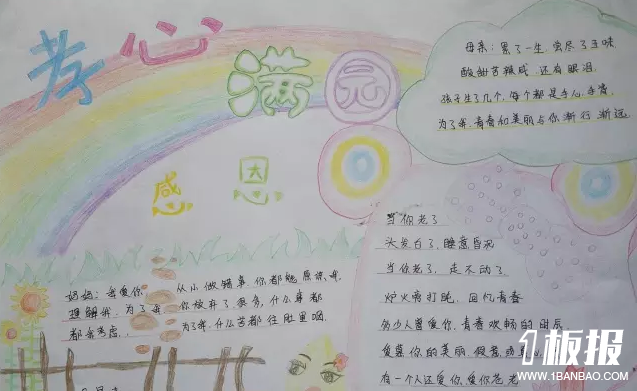 孝心
满园
感恩
母亲：累了一生，尝尽了五味
酸甜苦辣咸，还有眼泪
孩子生了几个，每个都是手心、手背
为了我，青春和美丽与你渐行渐远
当你老了
头发白了，睡意昏沉
当你老了，走不动了
炉火旁打盹，回忆青春
多少人曾爱你，青春欢畅的时辰
爱慕你的美丽，假意
有一个人还爱你，爱你
妈妈：我爱你 从小做错事，你都
理解我，为了我 你放弃了很多，什么事都
都 为了我，什么苦都往肚里咽
板报
WWW.1BANBAO.COM